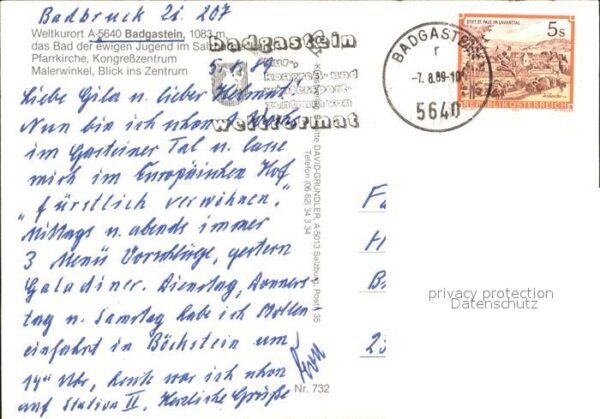 Badbruck Zi. 207
Weltkurort A-5640 Badgastein, 1083 m,
das Bad der ewigen Jugend im Salz
Pfarrkirche, Kongreßzentrum
Malerwinkel, Blick ins Zentrum
badgastein
kur-,
kongreß- und
wintersport-
zentrum von
weltformat
BADGASTEIN
r
-7. 8.89-10
5640
STIFT ST. PAUL IM LAVANTTAL
5s
REPUBLIK ÖSTERREICH
5. 8. 89
Liebe Gila u. lieber Helmut!
Nun bin ich schon 1 Woche
im Gasteiner Tal u. lasse
mich im Europäischen Hof
"fürstlich verwöhnen."
Mittags u. abends immer
3 Menü Vorschläge, gestern
Galadiner. Dienstag, Donners-
tag u. Samstag habe ich Stollen
einfahrt in Böckstein um
14⁰⁰ Uhr, heute war ich schon
auf Station II. Herzliche Grüße
DAVID-GRUNDLER, A-5013 Salzburg, Postf. 35
Telefon (06 62) 34 3 34
Nr. 732
privacy protection
Datenschutz